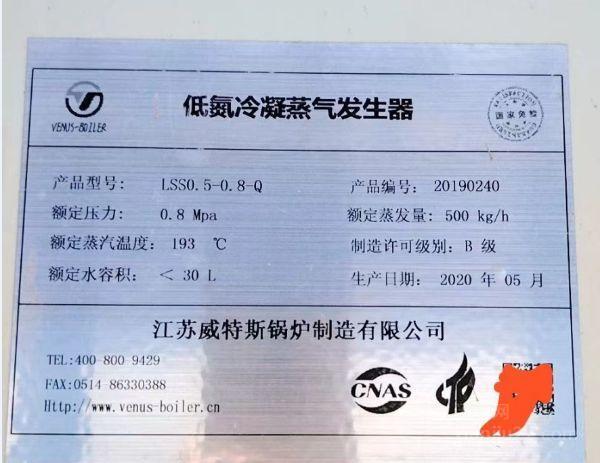 低氮冷凝蒸气发生器
VENUS-BOILER
国家免检
产品型号: LSS0.5-0.8-Q
产品编号: 20190240
额定压力: 0.8 Mpa
额定蒸发量: 500 kg/h
额定蒸汽温度: 193 ℃
制造许可级别: B 级
额定水容积: < 30 L
生产日期: 2020 年 05 月
江苏威特斯锅炉制造有限公司
TEL:400-800-9429
FAX:0514-86330388
Http://www.venus-boiler.cn
CNAS